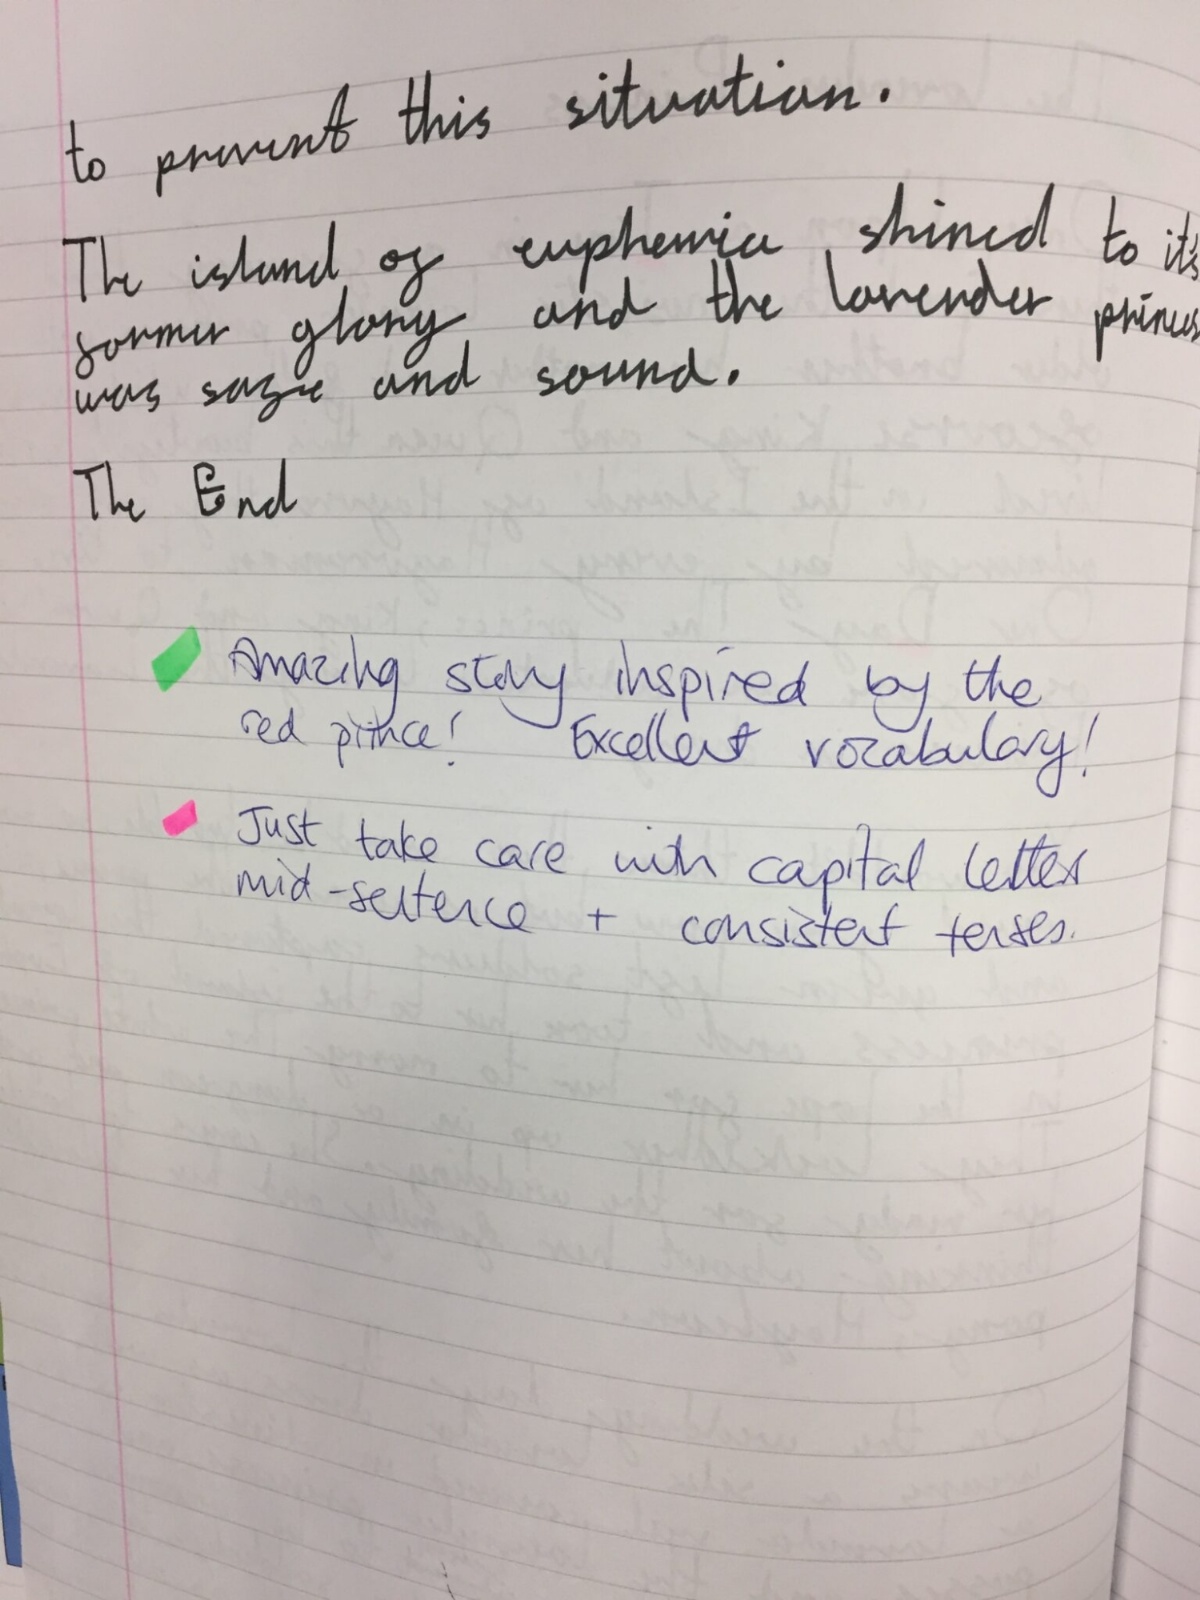 to prevent this situation.
The island of euphemia shined to its
former glory and the lavender princess
was safe and sound.
The End
Amazing story inspired by the
red prince! Excellent vocabulary!
Just take care with capital letters
mid-sentence + consistent tenses.